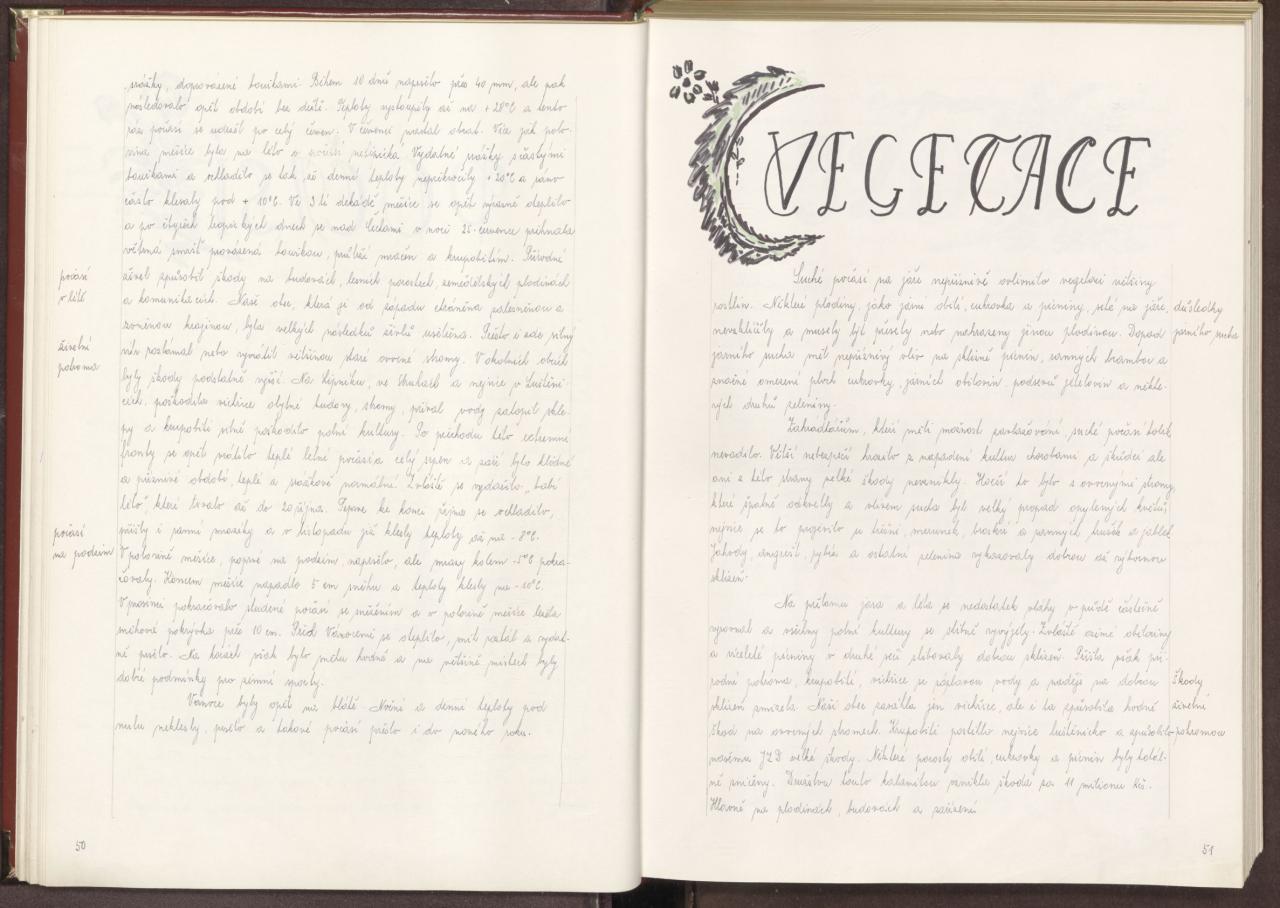 srážky, doprovázené bouřkami. Během 10 dnů napršelo přes 40 mm, ale pak
následovalo opět období bez deště. Teploty vystoupily až na +28°C a tento
ráz počasí se udržel po celý červen. V červenci nastal obrat. Více jak polo-
vina měsíce byla na léto o počasí netipická. Vydatné srážky s častými
bouřkami a ochladilo se tak, že denní teploty nepřekročily +20°C a ráno
často klesaly pod +10°C. Ve 3tí dekádě měsíce se opět výrazně oteplilo
a po čtyřech tropických dnech se nad Čechami v noci 25. července přihnala
větrná smršť provázená bouřkou, průtrží mračen a krupobitím. Přírodní
živel způsobil škody na budovách, lesních porostech, zemědělských plodinách
počasí
v létě
a komunikacích. Naše obec, která je od západu chráněna zalesněnou a
zvlněnou krajinou, byla velkých následků živlů ušetřena. Přesto i zde silný
živelní
pohroma
vítr polámal nebo vyvrátil většinou staré ovocné stromy. V okolních obcích
byly škody podstatně vyšší. Na Lipníku, ve Struhách a nejvíce v Luštěni-
cích, poškodila vichřice obytné budovy, stromy, příval vody zatopil skle-
py a krupobití silně poškodilo polní kultury. Po přechodu této extremní
fronty se opět vrátilo teplé letní počasí a celý srpen a září bylo klidné
a příznivé období, teplé a srážkově normální. Zvláště se vydařilo "babí
léto", které trvalo až do 20. října. Teprve ke konci října se ochladilo,
přišly i ranní mrazíky a v listopadu již klesly teploty až na -8°C.
počasí
na podzim
V polovině měsíce, poprvé na podzim, napršelo, ale mrazy kolem -5°C pokra-
čovaly. Koncem měsíce napadlo 5 cm sněhu a teploty klesly na -10°C.
V prosinci pokračovalo studené počasí se sněžením a v polovině měsíce byla
sněhová pokrývka přes 10 cm. Před Vánocemi se oteplilo, sníh roztál a vydat-
ně pršelo. Na horách však bylo sněhu hodně a na většině místech byly
dobré podmínky pro zimní sporty.
Vánoce byly opět na blátě. Noční a denní teploty pod
nulu neklesly, pršelo a takové počasí přešlo i do nového roku.
50
VEGETACE
Suché počasí na jaře nepříznivě ovlivnilo vegetaci většiny
rostlin. Některé plodiny, jako jarní obilí, cukrovka a pícniny, seté na jaře,
důsledky
jarního sucha
nevzklíčily a musely být přesety nebo nahrazeny jinou plodinou. Dopad
jarního sucha měl nepříznivý vliv na sklizně pícnin, ranných brambor a
značné omezení ploch cukrovky, jarních obilovin, podsevů jetelovin a někte-
rých druhů zeleniny.
Zahrádkářům, kteří měli možnost zavlažování, suché počasí tolik
nevadilo. Větší nebezpečí hrozilo z napadení kultur chorobami a škůdci ale
ani z této strany velké škody nevznikly. Horší to bylo s ovocnými stromy,
které špatně odkvetly a vlivem sucha byl velký propad opylených květů,
nejvíce se to projevilo u třešní, meruněk, broskví a ranných hrušek a jablek.
Jahody, angrešt, rybíz a ostatní zelenina vykazovaly dobrou až výbornou
sklizeň.
Na přelomu jara a léta se nedostatek vláhy v půdě částečně
vyrovnal a všechny polní kultury se slibně vyvíjely. Zvláště ozimé obiloviny
a víceleté pícniny v druhé seči slibovaly dobrou sklizeň. Přišla však pří-
rodní pohroma, krupobití, vichřice se záplavou vody a naděje na dobrou
škody
živelní
pohromou
sklizeň zmizela. Naši obec zasáhla jen vichřice, ale i ta způsobila hodně
škod na ovocných stromech. Krupobití postihlo nejvíce Luštěnicko a způsobilo
našemu JZD velké škody. Některé porosty obilí, cukrovky a pícnin byly totál-
ně zničeny. Družstvu touto kalamitou vznikla škoda za 11 milionu Kčs.
Hlavně na plodinách, budovách a zařízení.
51